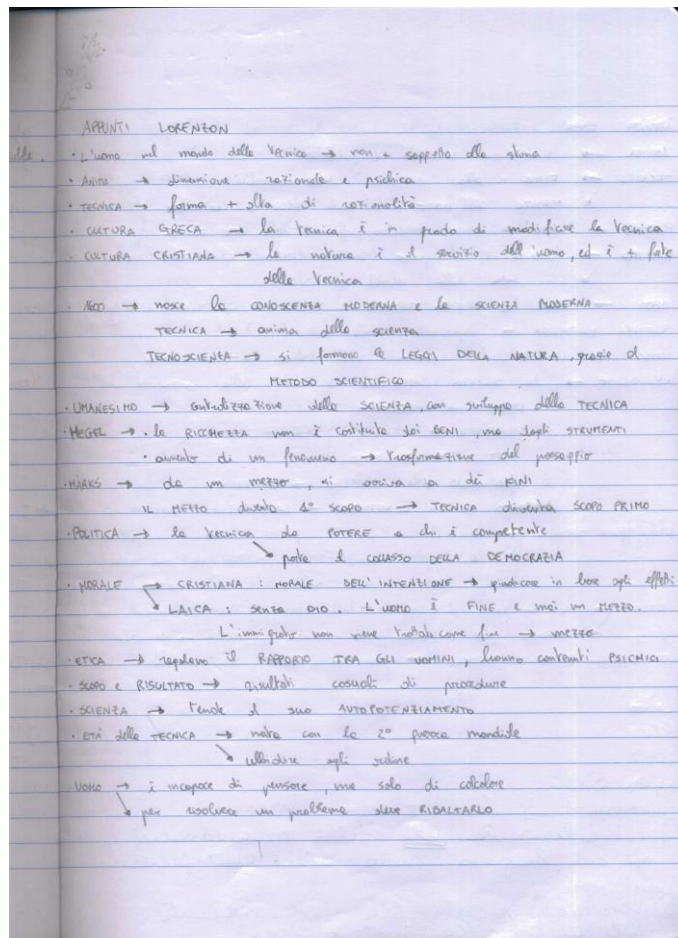 APPUNTI LORENZON
· L'uomo nel mondo della tecnica → non + soggetto della storia
· ANIMA → dimensione razionale e psichica
· TECNICA → forma + alta di razionalità
· CULTURA GRECA → la tecnica è in grado di modificare la tecnica
· CULTURA CRISTIANA → la natura è al servizio dell'uomo, ed è + forte
della tecnica
· 1600 → nasce la CONOSCENZA MODERNA e la SCIENZA MODERNA
TECNICA → anima della scienza
TECNOSCIENZA → si formano le LEGGI DELLA NATURA, grazie al
METODO SCIENTIFICO
· UMANESIMO → centralizzazione della SCIENZA, con sviluppo della TECNICA
· HEGEL → · la RICCHEZZA non è costituita dai BENI, ma dagli STRUMENTI
· aumento di un fenomeno → trasformazione del paesaggio
· MARKS → da un mezzo, si arriva a dei FINI
IL MEZZO diventa 1° SCOPO → TECNICA diventa SCOPO PRIMO
· POLITICA → la tecnica da POTERE a chi è competente
→ porta al COLLASSO DELLA DEMOCRAZIA
· MORALE → CRISTIANA : MORALE DELL'INTENZIONE → giudicare in base agli effetti
→ LAICA : senza DIO. L'UOMO È FINE e mai un MEZZO.
L'immigrato non viene trattato come fine → mezzo
· ETICA → regolano il RAPPORTO TRA GLI UOMINI, hanno contenuti PSICHICI
· SCOPO E RISULTATO → risultati casuali di procedure
· SCIENZA → tende al suo AUTOPOTENZIAMENTO
· ETÀ della TECNICA → nata con la 2° guerra mondiale
→ ubbidire agli ordine
· UOMO → è incapace di pensare, ma solo di calcolare
→ per risolvere un problema deve RIBALTARLO